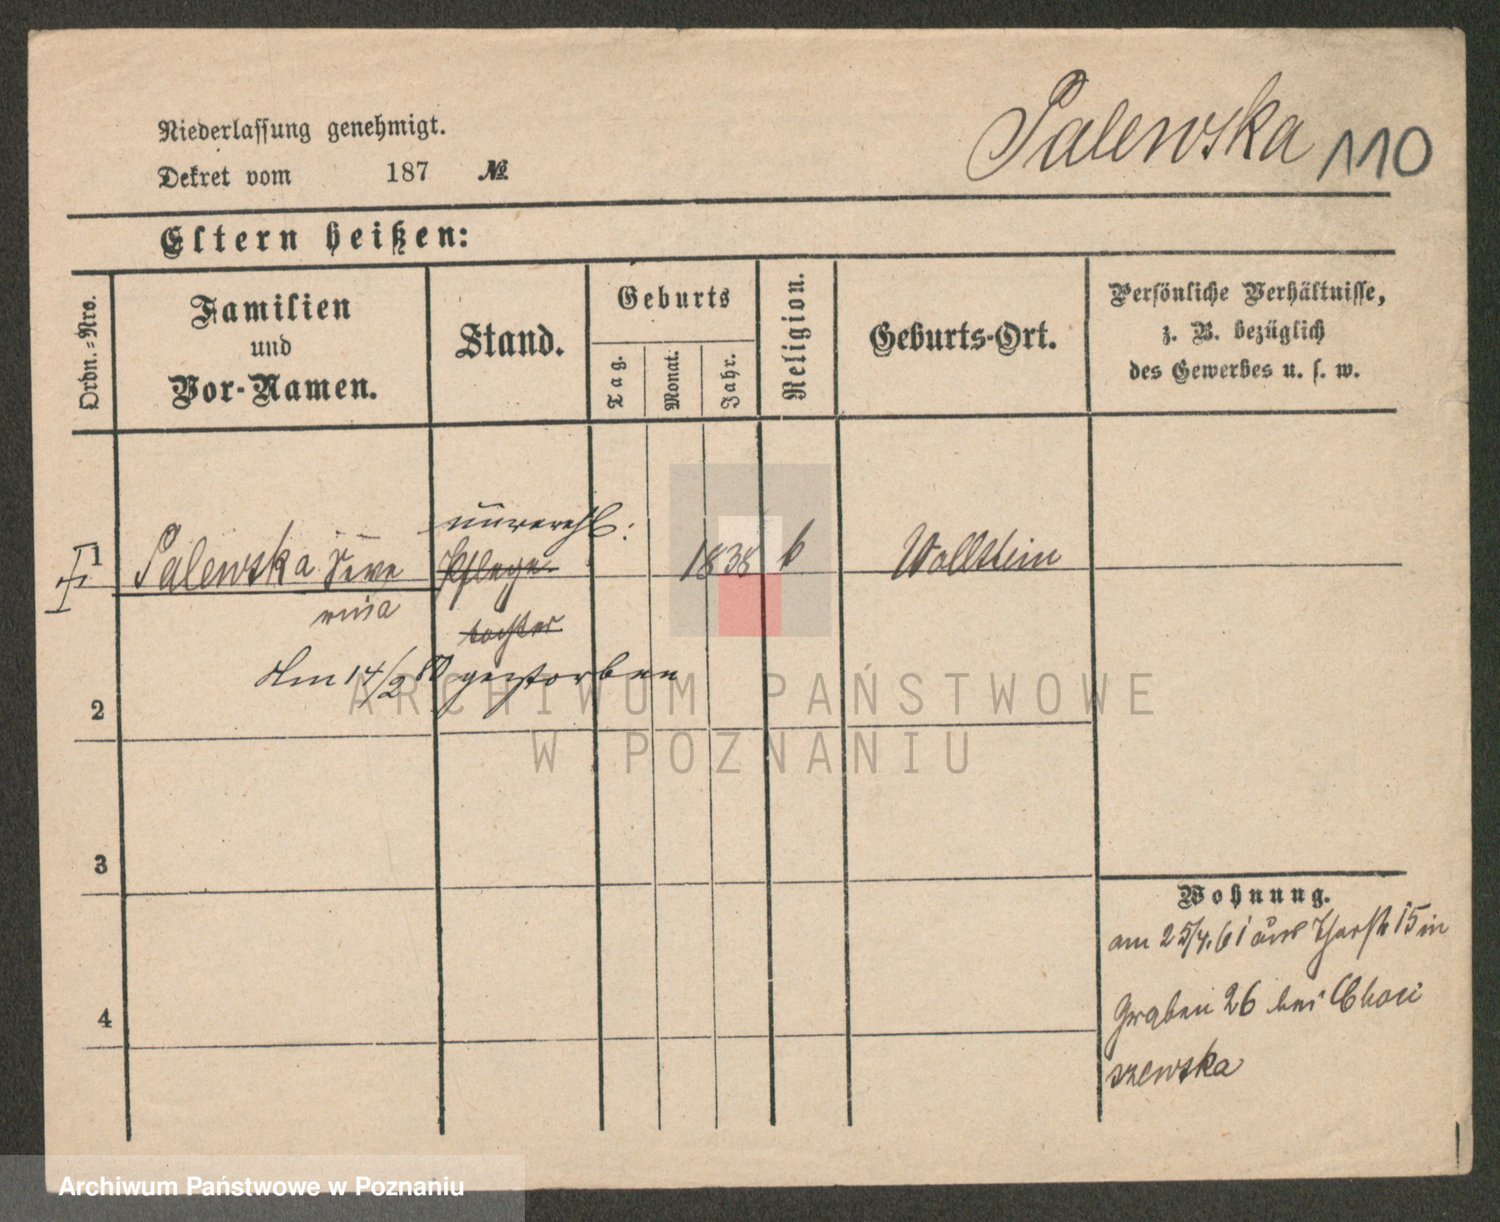 Palewska 110
Niederlassung genehmigt.
Dekret vom 187 №
Eltern heißen:
Ordn.-Nro.
Familien
und
Vor-Namen.
Stand.
Geburts
Tag.
Monat.
Jahr.
Religion.
Geburts-Ort.
Persönliche Verhältnisse,
z. B. bezüglich
des Gewerbes u. s. w.
unverehl.
1 Palewska Seve Pflege 1838 k Wollstein
rina
tochter
Am 14/2 80 gestorben
2
3
4
Wohnung.
am 25/4.61 aus 15 in
Graben 26 bei Choci
szewska
ARCHIWUM PAŃSTWOWE
W POZNANIU
Archiwum Państwowe w Poznaniu